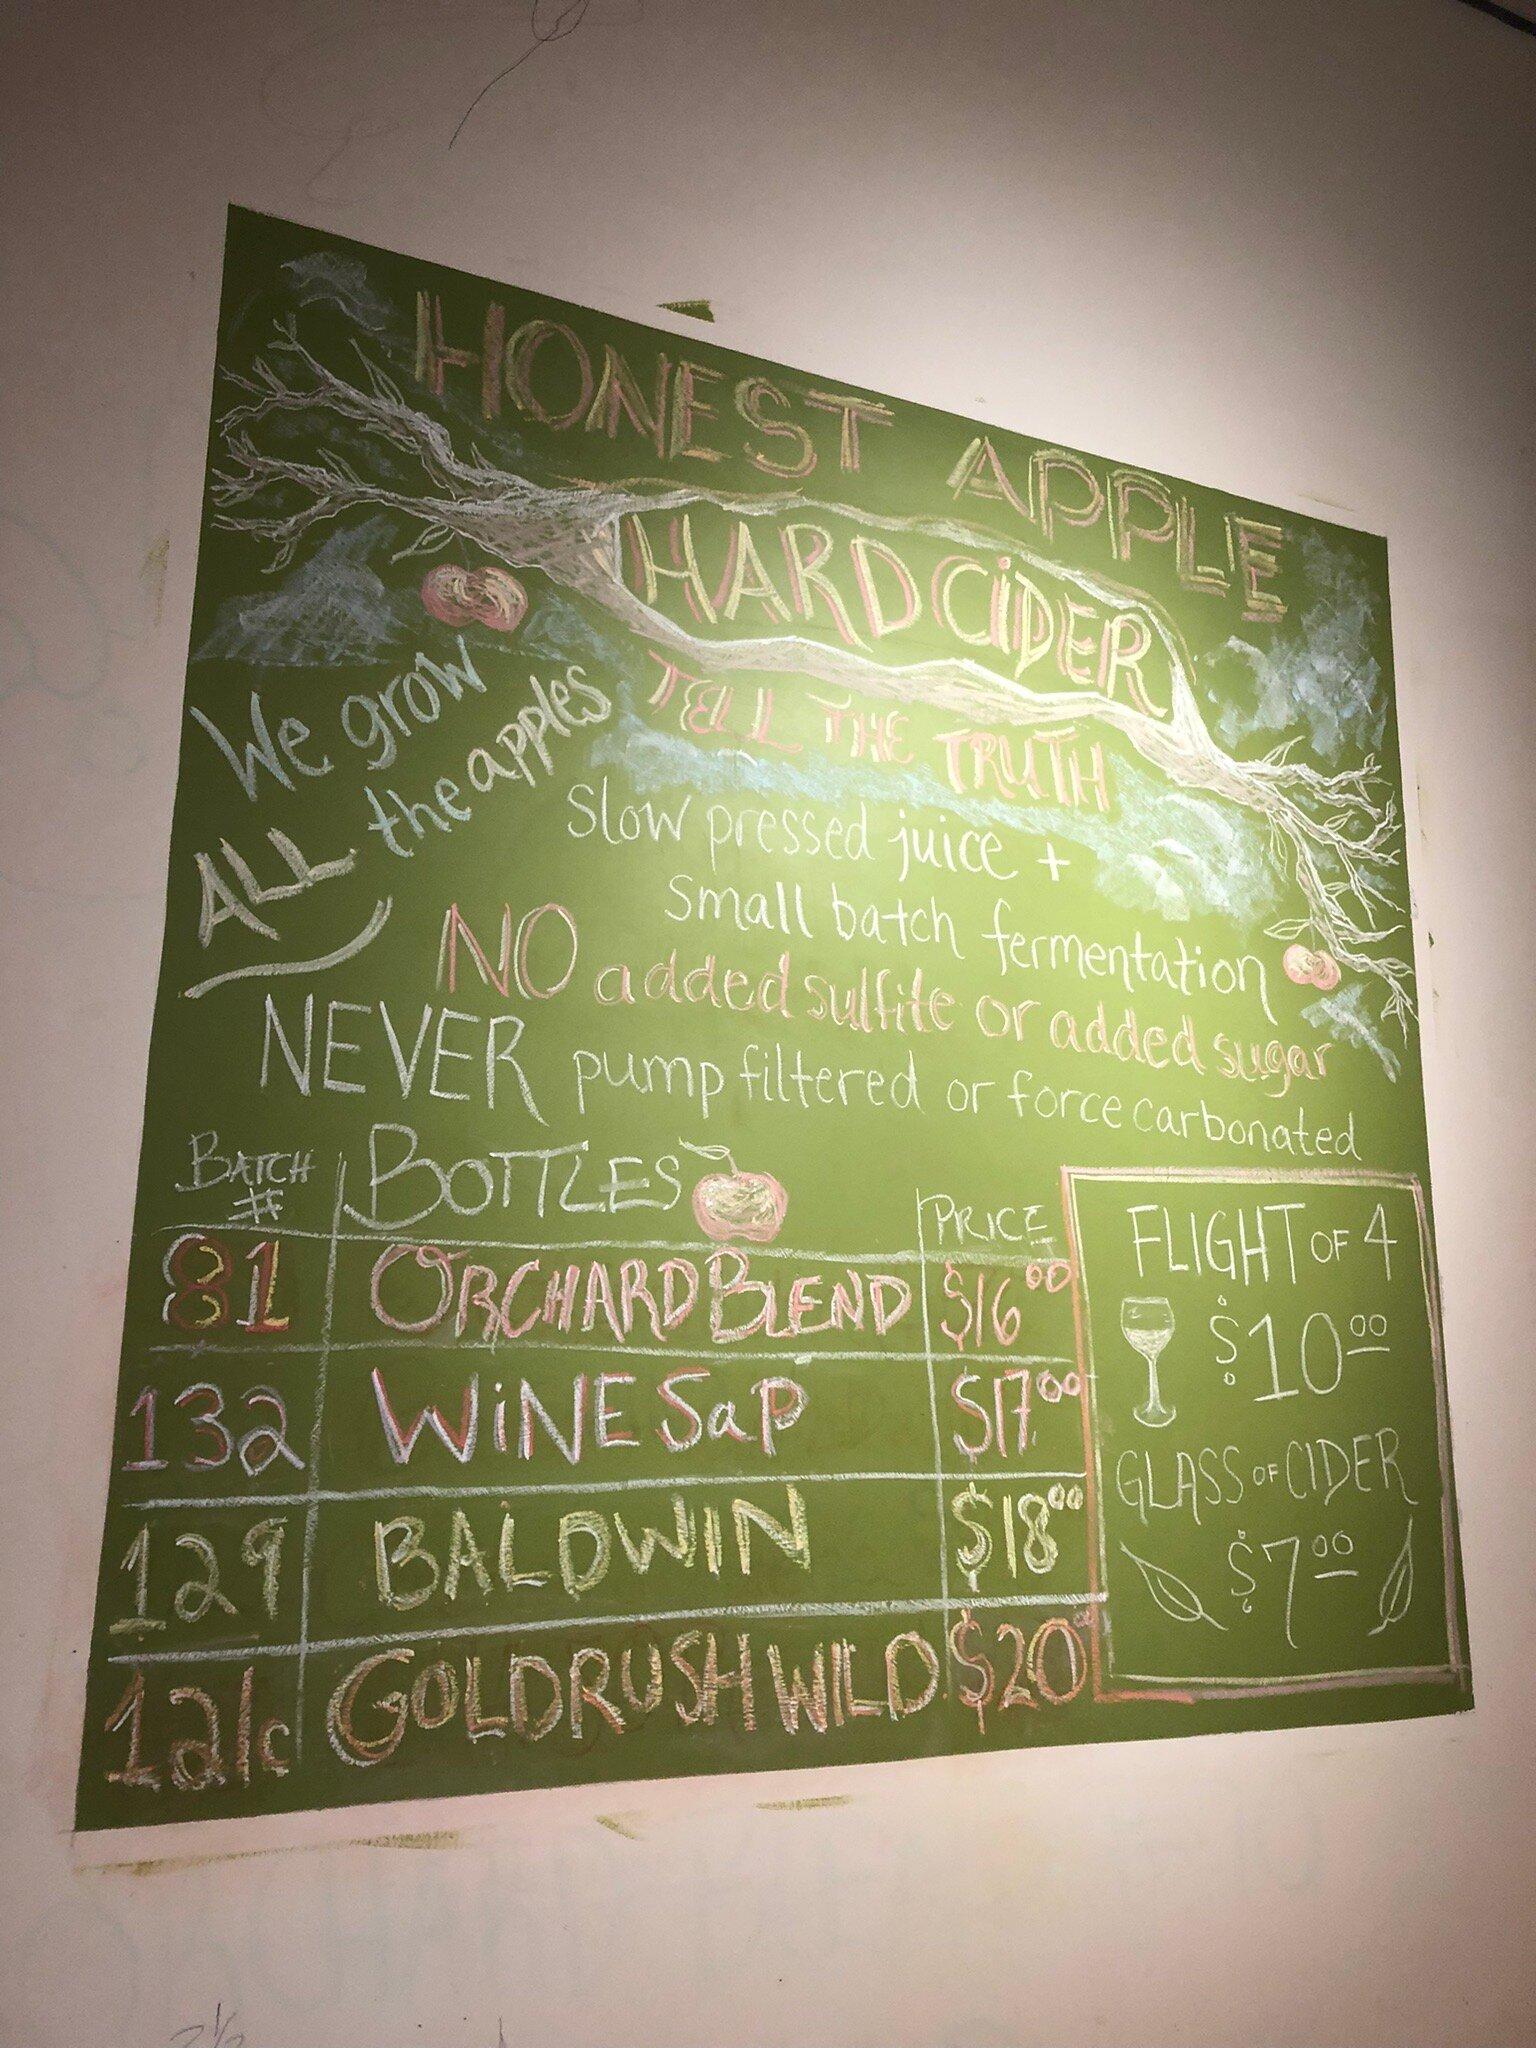 HONEST APPLE
HARD CiDER
TELL THE TRUTH
We grow
ALL the apples
Slow pressed juice +
Small batch fermentation
NO added sulfite or added sugar
NEVER pump filtered or force carbonated
BATCH # BOTTLES PRICE
81 ORCHARD BLEND $16 00
132 WiNESaP $17 00
129 BALDWIN $18 00
121c GOLDRUSH WILD $20 00
FLIGHT OF 4
$10 00
GLASS OF CIDER
$7 00
2 1/2